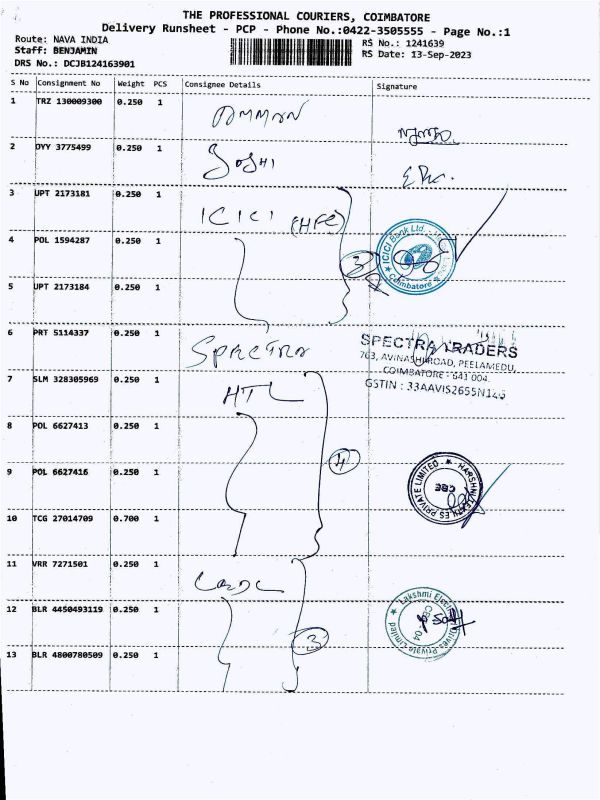 THE PROFESSIONAL COURIERS, COIMBATORE
Delivery Runsheet - PCP - Phone No.:0422-3505555 - Page No.:1
Route: NAVA INDIA
Staff: BENJAMIN
DRS No.: DCJB124163901
RS No.: 1241639
RS Date: 13-Sep-2023
S No Consignment No Weight PCS Consignee Details Signature
1 TRZ 130009300 0.250 1 AMMAN
2 OYY 3775499 0.250 1 JOSHI
3 UPT 2173181 0.250 1 ICICI (HFC)
4 POL 1594287 0.250 1
3
ICICI Bank Ltd. Coimbatore
5 UPT 2173184 0.250 1
6 PRT 5114337 0.250 1 SPECTRA
SPECTRA TRADERS
763, AVINASHI ROAD, PEELAMEDU,
COIMBATORE - 641 004.
GSTIN : 33AAVIS2655N1
7 SLM 328305969 0.250 1 HTL
8 POL 6627413 0.250 1
4
9 POL 6627416 0.250 1
HARSHNI TEXTILES PRIVATE LIMITED
CBE
10 TCG 27014709 0.700 1
11 VRR 7271501 0.250 1
12 BLR 4450493119 0.250 1
3
Lakshmi Electrical Drives Private Limited
CBE - 04
13 BLR 4800780509 0.250 1